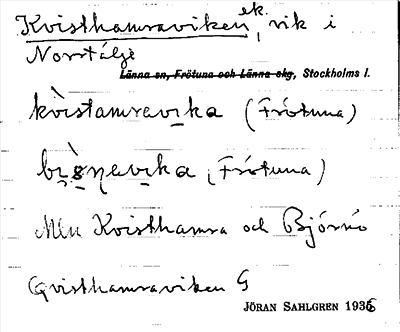 Kvisthamraviken, ek. vik i
Norrtälje
Länna sn, Frötuna och Länna skg, Stockholms l.
kvìstamravika (Frötuna)
(Frötuna)
Mln Kvisthamra och Björnö
Qvisthamraviken G
JÖRAN SAHLGREN 1936